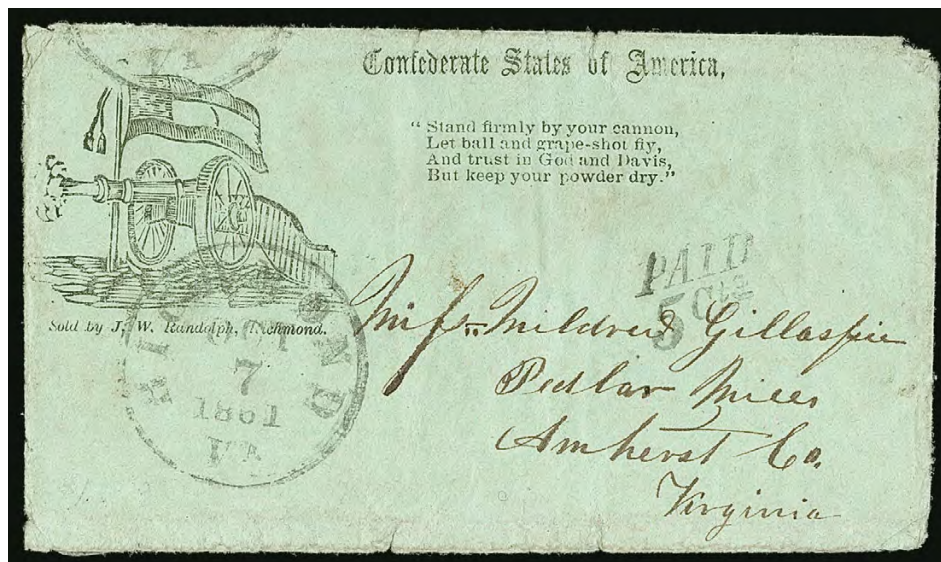 VA
Confederate States of America,
" Stand firmly by your cannon,
Let ball and grape-shot fly,
And trust in God and Davis,
But keep your powder dry."
PAID
5 Cts
Sold by J. W. Randolph, Richmond.
RICHMOND
OCT
7
1861
VA
Miſs Mildred Gillaspie
Pedlar Mills
Amherst Co.
Virginia